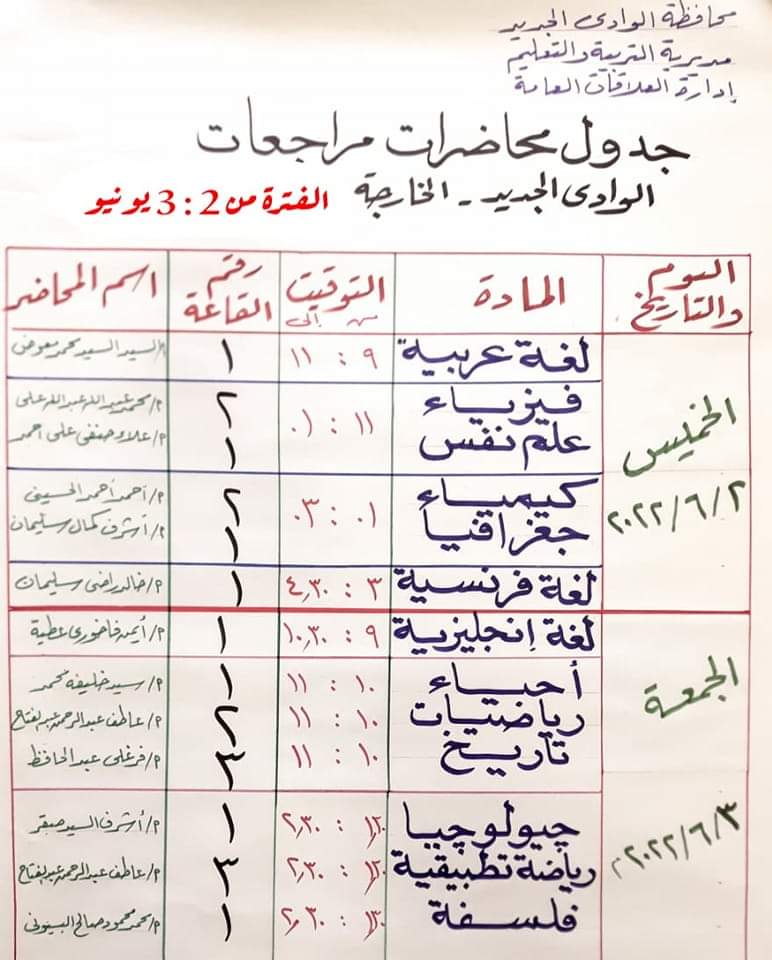 محافظة الوادى الجديد
مديرية التربية والتعليم
إدارة العلاقات العامة
جدول محاضرات مراجعات
الوادى الجديد - الخارجة الفترة من 2 : 3 يونيو
اليوم والتاريخ المادة التوقيت من إلى رقم القاعة اسم المحاضر
الخميس
٢٠٢٢/٦/٢
لغة عربية ٩ : ١١ ١ م/السيد السيد محمد معوض
فيزياء ١١ : ٠١ ٢ م/محمد عبد الله عبد الله على
علم نفس ١ م/علاء حنفى على احمد
كيمياء ٠١ : ٠٣ ٢ م/أحمد أحمد الحسينى
جغرافيا ١ م/أشرف كمال سليمان
لغة فرنسية ٣ : ٤,٣٠ ١ م/خالد راضى سليمان
الجمعة
٢٠٢٢/٦/٣م
لغة إنجليزية ٩ : ١٠,٣٠ ١ م/أيمن فاخورى عطية
أحياء ١٠ : ١١ ١ م/سيد خليفة محمد
رياضتيات ١٠ : ١١ ٢ م/عاطف عبد الرحمن عبد الفتاح
تاريخ ١٠ : ١١ ٣ م/فرغلى عبد الحافظ
چيولوچيا : ٢,٣٠ ١ م/أشرف السيد صقر
رياضة تطبيقية : ٢,٣٠ ٣ م/عاطف عبد الرحمن عبد الفتاح
فلسفة : ٢,٣٠ ١ م/محمد محمود صالح البسيونى